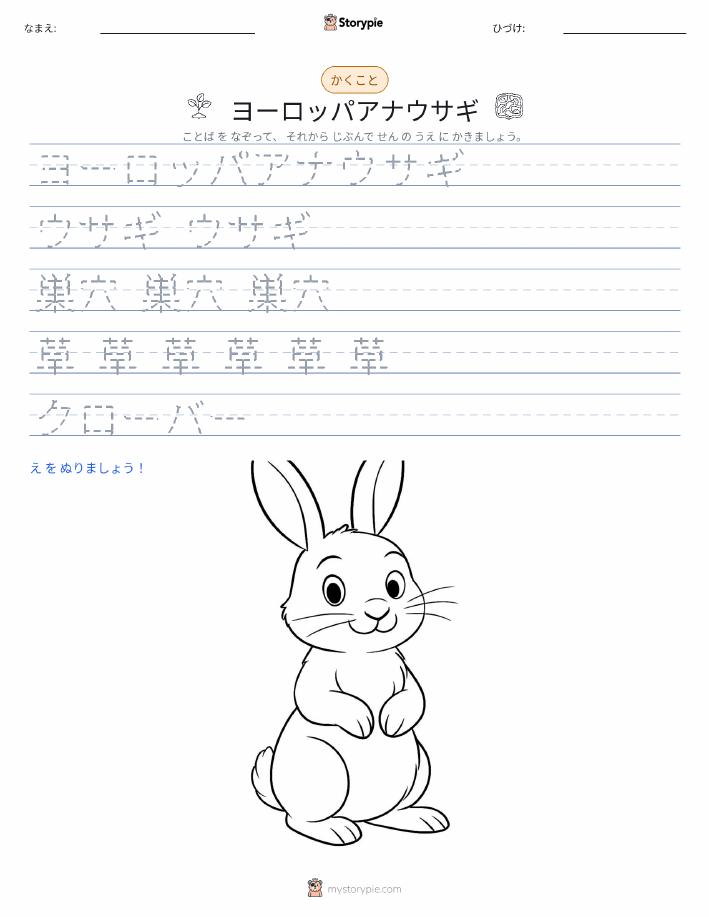 なまえ:
Storypie
ひづけ:
かくこと
ヨーロッパアナウサギ
ことば を なぞって、 それから じぶんで せん の うえ に かきましょう。
ヨーロッパアナウサギ
ウサギ ウサギ
巣穴 巣穴 巣穴
草 草 草 草 草 草
クローバー
え を ぬりましょう！
mystorypie.com